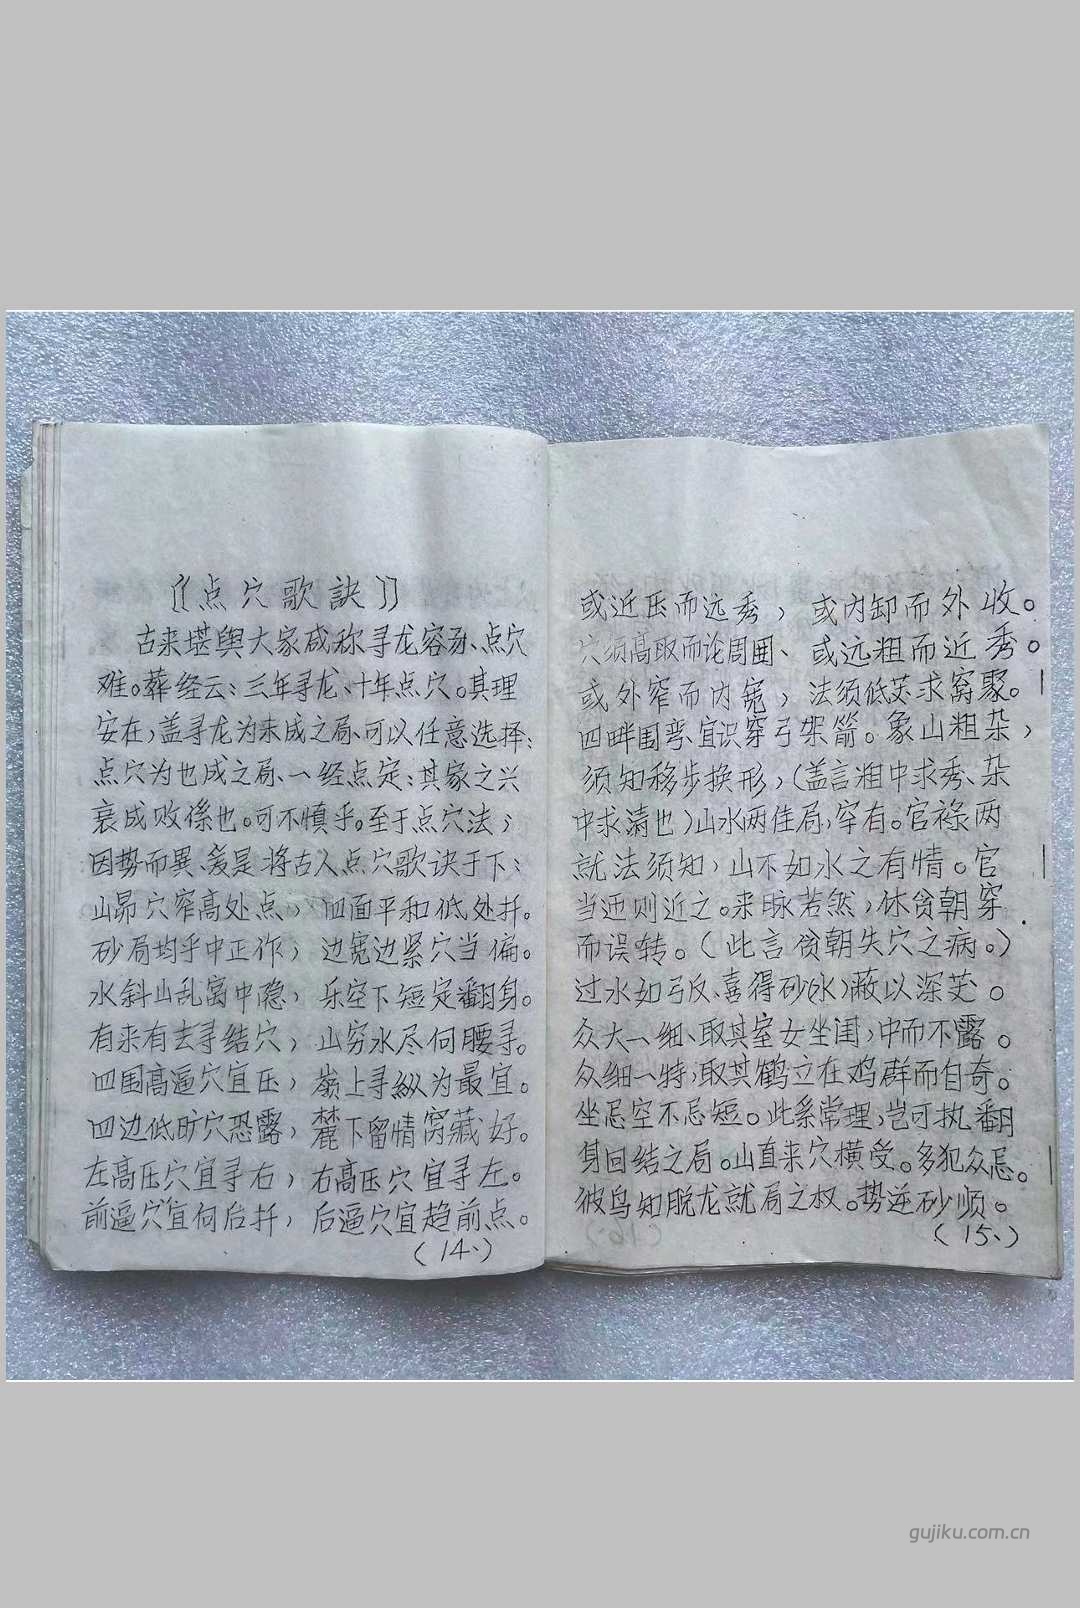 〖点穴歌訣〗
古来堪舆大家咸称寻龙容易、点穴
难。葬经云:三年寻龙、十年点穴。其理
安在,盖寻龙为未成之局、可以任意选择;
点穴为也成之局、一经点定;其家之兴
衰成败係也。可不慎乎。至于点穴法;
因势而異、爰是将古人点穴歌诀于下:
山昂穴窄高处点, 四面平和低处扦。
砂局均乎中正作, 边宽边紧穴当偏。
水斜山乱窩中隐, 乐空下短定翻身。
有来有去寻结穴, 山穷水尽何腰寻。
四围高逼穴宜压, 嶺上寻縱为最宜。
四边低旷穴恐露, 麓下留情窝藏好。
左高压穴宜寻右, 右高压穴宜寻左。
前逼穴宜向后扦, 后逼穴宜趋前点。
(14、)
或近压而远秀, 或内卸而外收。
穴须高取而论周囲、或远粗而近秀。
或外窄而内宽, 法须低芖求窩聚。
四畔围弯、宜识穿弓架箭。象山粗杂,
须知移步换形,(盖言粗中求秀、杂
中求清也)山水两佳局,罕有。官祿两
就法须知,山不如水之有情。官
当迊则近之。来脉若然,休贪朝穿
而误转。(此言贪朝失穴之病。)
过水如弓反、喜得砂(水)蔽以深芖。
众大一细、取其室女坐闺,中而不露。
众细一特,取其鹤立在鸡群而自奇。
坐忌空不忌短。此系常理,岂可执翻
身回结之局。山直来穴横受。多犯众忌。
彼鸟知脱龙就局之权。势逆砂顺。
(15、)
gujiku.com.cn